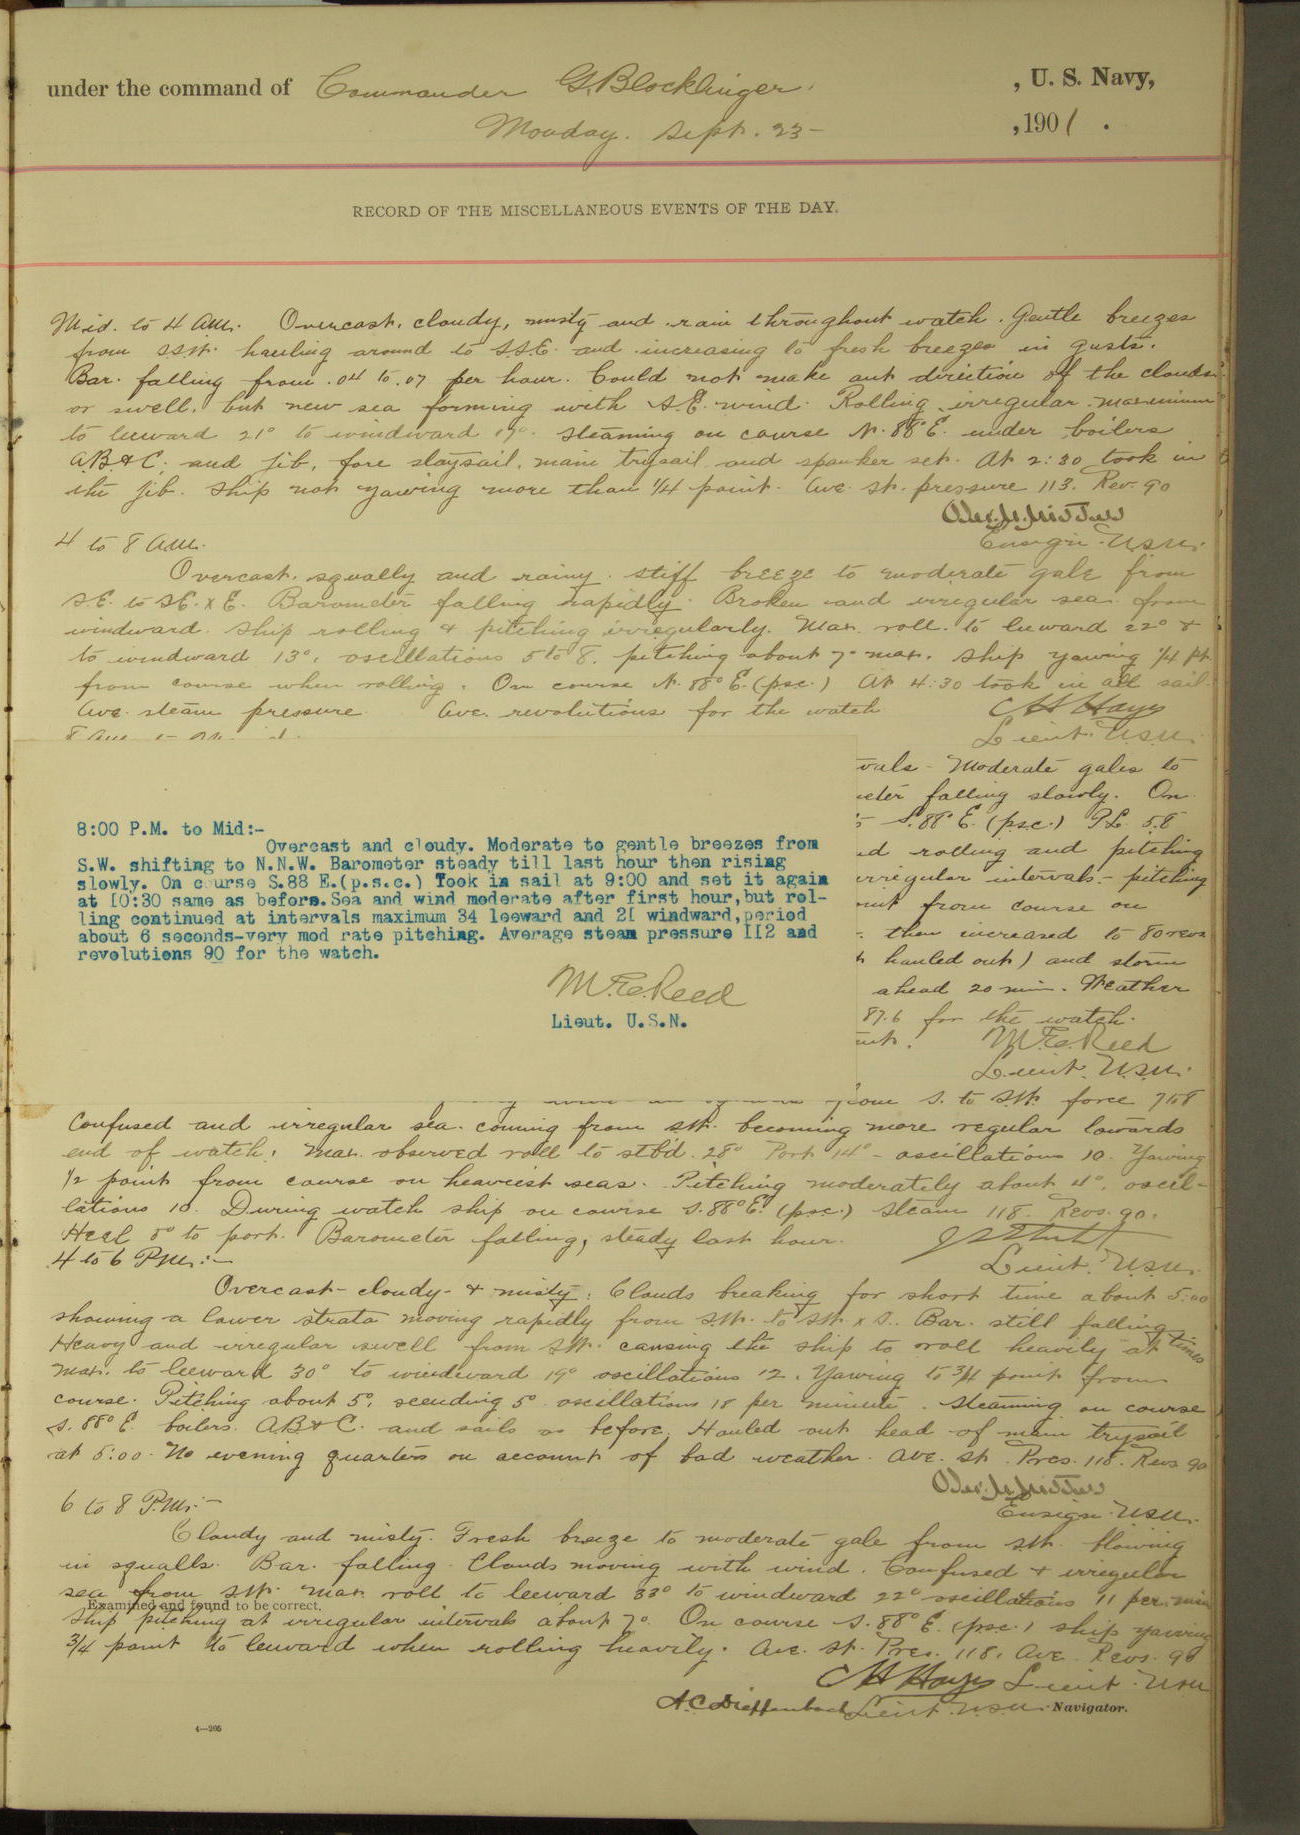 under the command of Commander G. Blocklinger, , U. S. Navy,
Monday. Sept. 23- , 1901.
RECORD OF THE MISCELLANEOUS EVENTS OF THE DAY.
Mid. to 4 AM. Overcast, cloudy, misty and rain throughout watch. Gentle breezes
from SSW. hauling around to S.S.E. and increasing to fresh breezes in gusts.
Bar. falling from .04 to .07 per hour. Could not make out direction of the clouds
or swell, but new sea forming with S.E. wind. Rolling irregular maximum
to leeward 21° to windward 17°. Steaming on course N. 88° E. under boilers
AB&C; and jib, fore staysail, main trysail and spanker set. At 2:30 took in
the jib. Ship not yawing more than 1/4 point. Ave. st. pressure 113. Rev. 90
Ensign. U.S.N.
4 to 8 AM.
Overcast, squally and rainy. Stiff breeze to moderate gale from
S.E. to SE. x E. Barometer falling rapidly. Broken and irregular sea from
windward. Ship rolling & pitching irregularly. Max. roll to leeward 22° &
to windward 13°, oscillations 5 to 8, pitching about 7° max. Ship yawing 1/4 pt.
from course when rolling. On course N. 88° E. (psc.) At 4:30 took in all sail.
Ave. steam pressure Ave. revolutions for the watch
C H Hayes
Lieut. U.S.N.
vals - Moderate gales to
meter falling slowly. On
S. 88° E. (psc.) P.L. 5.8
nd rolling and pitching
irregular intervals - pitching
from course on
then increased to 80 revs
hauled out) and storm
ahead 20 min. Weather
87.6 for the watch.
M.E. Reed
Lieut. U.S.N.
8:00 P.M. to Mid:-
Overcast and cloudy. Moderate to gentle breezes from
S.W. shifting to N.N.W. Barometer steady till last hour then rising
slowly. On c urse S.88 E.(p.s.c.) Took in sail at 9:00 and set it again
at I0:30 same as before. Sea and wind moderate after first hour,but rol-
ling continued at intervals maximum 34 leeward and 2I windward,period
about 6 seconds-very mod rate pitching. Average steam pressure II2 and
revolutions 90 for the watch.
M.E. Reed
Lieut. U.S.N.
from S. to SW. force 7 to 8
Confused and irregular sea coming from SW. becoming more regular towards
end of watch. Max. observed roll to stb'd. 28° Port 14° - oscillations 10. Yawing
1/2 point from course on heaviest seas. Pitching moderately about 4°, oscil-
lations 10. During watch ship on course S. 88° E. (psc.) Steam 118. Revs. 90.
Heel 5° to port. Barometer falling, steady last hour.
Lieut. U.S.N.
4 to 6 P.M.:-
Overcast - cloudy - & misty. Clouds breaking for short time about 5:00
showing a lower strata moving rapidly from S.W. to SW. x S. Bar. still falling
Heavy and irregular swell from SW. causing the ship to roll heavily at times
Max. to leeward 30° to windward 19° oscillations 12. Yawing to 3/4 point from
course. Pitching about 5°, scending 5° oscillations 18 per minute. Steaming on course
S. 88° E. boilers AB&C. and sails as before. Hauled out head of main trysail
at 5:00. No evening quarters on account of bad weather. Ave. st. Pres. 118. Revs 90
Ensign. U.S.N.
6 to 8 P.M.:-
Cloudy and misty. Fresh breeze to moderate gale from SW. blowing
in squalls. Bar. falling. Clouds moving with wind. Confused & irregular
sea from SW. Max roll to leeward 33° to windward 22° oscillations 11 per min
Examined and found to be correct.
Ship pitching at irregular intervals about 7°. On course S. 88° E. (psc.) ship yawing
3/4 point to leeward when rolling heavily. Ave. St. Pres. 118, Ave. Revs. 90
C H Hayes Lieut. U.S.N.
A.C. Dieffenbach Lieut. U.S.N. Navigator.
4—205